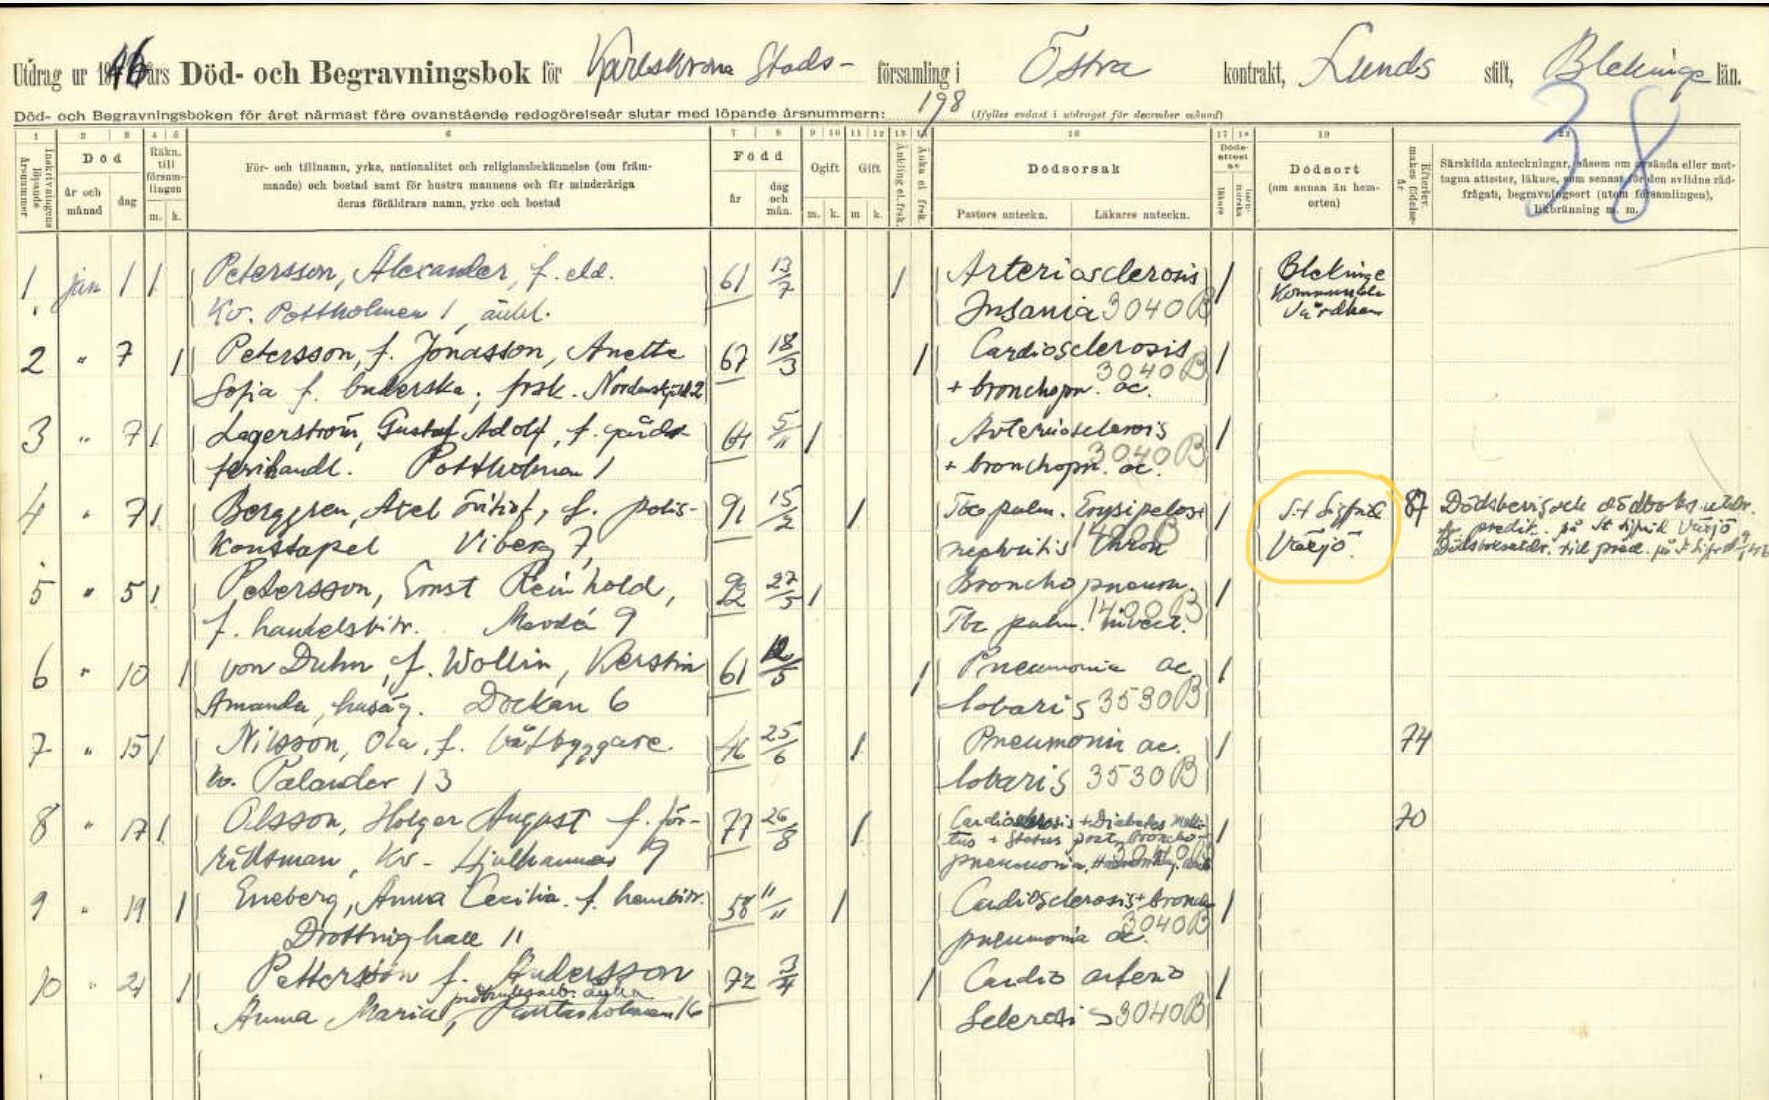 Utdrag ur 1946 års Död- och Begravningsbok för Karlskrona Stads- församling i Östra kontrakt, Lunds stift, Blekinge län.
Död- och Begravningsboken för året närmast före ovanstående redogörelseår slutar med löpande årsnummer: 198 (Ifylles endast i utdraget för december månad)
38
1 2 3 4 5 6 7 8 9 10 11 12 13 14 16 17 18 19
Inskrivningens löpande årsnummer
Död
år och månad
dag
Räkn. till församlingen
m. k.
För- och tillnamn, yrke, nationalitet och religionsbekännelse (om främ-
mande) och bostad samt för hustru mannens och för minderåriga
deras föräldrars namn, yrke och bostad
Född
år
dag och mån.
Ogift
m. k.
Gift
m k.
Änkling el. frsk.
Änka el. frsk.
Dödsorsak
Pastors anteckn.
Läkares anteckn.
Dödsattest av
läkare
Dödsort
(om annan än hem-
orten)
Efterlev. makes födelseår
Särskilda anteckningar, såsom om avsända eller mot-
tagna attester, läkare, som senast för den avlidne råd-
frågats, begravningsort (utom församlingen),
likbränning m. m.
1 jan 1 1 Petersson, Alexander, f. eld. 61 13/7 1 Arteriosclerosis 1 Blekinge
Kv. Pottholmen 1, änkl. Insania 3040 B
2 " 7 1 Petersson, f. Jonasson, Anette 67 18/3 1 Cardiosclerosis 1
Sofia f. frsk. 3040 B + bronchopn. ac.
3 " 7 1 Lagerström, Gustaf Adolf, f. 61 5/11 1 Arteriosclerosis 1
Pottholmen 1 3040 B + bronchopn. ac.
4 " 7 1 Berggren, Axel Fritiof, f. polis- 91 15/2 1 Tbc pulm. Erysipelas 1 S:t Sigfrid 87 Dödsbevis och dödboksutdr.
konstapel Viberg 7, nephritis chron 1400 B Växjö. på St Sigfrid Växjö
5 " 5 1 Petersson, Ernst Reinhold, 92 27/5 1 Bronchopneum. 1
f. handelsbitr. 9 1400 B Tbc pulm.
6 " 10 1 von Duhn, f. Wollin, Kerstin 61 12/5 1 Pneumonia ac. 1
Amanda, husäg. Dockan 6 lobaris 3530 B
7 " 15 1 Nilsson, Ola, f. båtbyggare. 46 25/6 1 Pneumoni ac. 1 74
kv. Palander 13 lobaris 3530 B
8 " 17 1 Olsson, Holger August f. för- 77 26/8 1 + Diabetes 1 70
rådsman, Kv. 9 + Status post. broncho-
pneumonia,
9 " 19 1 Eneberg, Anna Cecilia. f. 58 11/11 1 Cardiosclerosis + broncho 1
Drottninghall 11 pneumonia ac. 3040 B
10 " 21 1 Pettersson f. Andersson 72 3/4 1 Cardio arterio 1
Anna Maria, 16 Sclerosis 3040 B